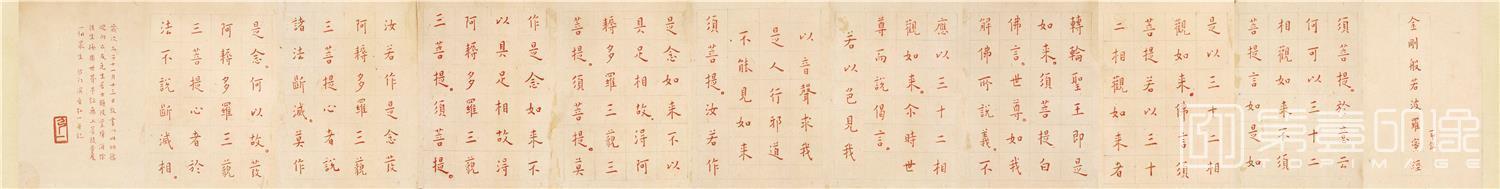 金剛般若波羅蜜經
須菩提。於意云
何可以三十二
相觀如來不。須
菩提言。如是如
是以三十二相
觀如來。佛言須
菩提若以三十
二相觀如來者
轉輪聖王即是
如來。須菩提白
佛言。世尊。如我
解佛所說義。不
應以三十二相
觀如來。尒時世
尊而說偈言。
若以色見我
以音聲求我
是人行邪道
不能見如來
須菩提。汝若作
是念如來不以
具足相故得阿
耨多羅三藐三
菩提。須菩提。莫
作是念如來不
以具足相故得
阿耨多羅三藐
三菩提。須菩提。
汝若作是念發
阿耨多羅三藐
三菩提心者說
諸法斷滅。莫作
是念。何以故。發
阿耨多羅三藐
三菩提心者於
法不說斷滅相。
第壹印像
TOPIMAGE